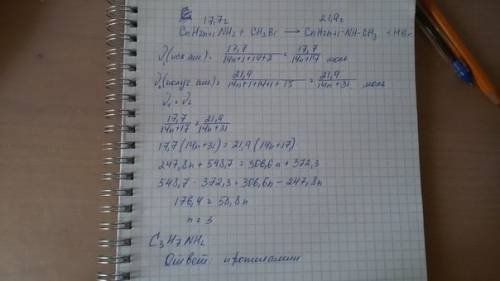 17,7г 21,9г
CnH2n+1NH2 + CH3Br → CnH2n+1-NH-CH3 + HBr
ν(исх ам) = 17,7/14n+1+14+2 = 17,7/14n+17 моль
ν(получ ам) = 21,9/14n+1+14+1+15 = 21,9/14n+31 моль
ν1 = ν2
17,7/14n+17 = 21,9/14n+31
17,7(14n+31) = 21,9(14n+17)
247,8n + 548,7 = 306,6n + 372,3
548,7 - 372,3 = 306,6n - 247,8n
176,4 = 58,8n
n = 3
C3H7NH2
Ответ пропиламин